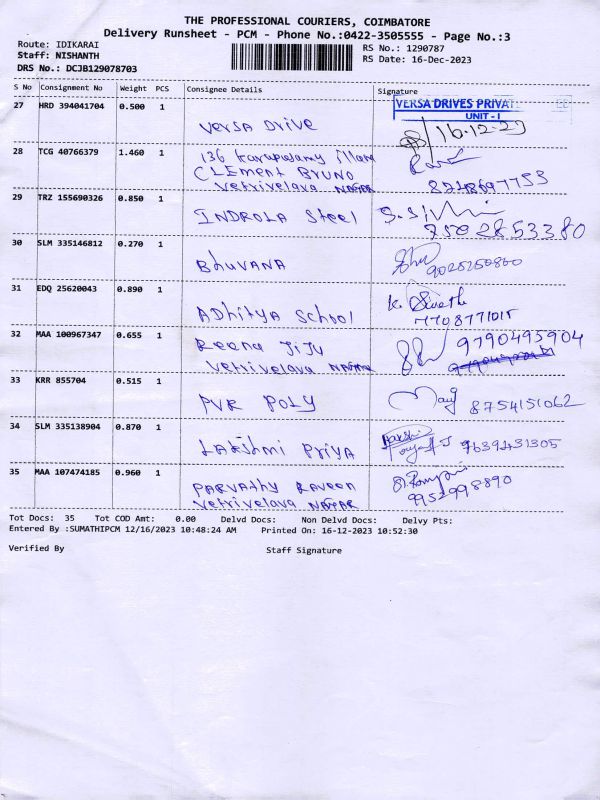 THE PROFESSIONAL COURIERS, COIMBATORE
Delivery Runsheet - PCM - Phone No.:0422-3505555 - Page No.:3
Route: IDIKARAI
RS No.: 1290787
Staff: NISHANTH
RS Date: 16-Dec-2023
DRS No.: DCJB129078703
S No Consignment No Weight PCS Consignee Details Signature
27 HRD 394041704 0.500 1 VERSA DRIVES PRIVAT
UNIT - I
Versa Drive 16-12-23
28 TCG 40766379 1.460 1 136 Karupusamy illam
CLEMENT BRUNO
Vetrivelava NAGAR
29 TRZ 155690326 0.850 1
INDROLA Steel 750 2853380
30 SLM 335146812 0.270 1
BHUVANA
31 EDQ 25620043 0.890 1
ADHITYA School 7708771015
32 MAA 100967347 0.655 1 Reena JIJU 9790495904
Vetrivelava NAGAR
33 KRR 855704 0.515 1
PVR POLY 8754151062
34 SLM 335138904 0.870 1
LAKSHMI PRIYA
35 MAA 107474185 0.960 1
PARVATHY RAVEEN
Vetrivelava NAGAR 9952998890
Tot Docs: 35 Tot COD Amt: 0.00 Delvd Docs: Non Delvd Docs: Delvy Pts:
Entered By :SUMATHIPCM 12/16/2023 10:48:24 AM Printed On: 16-12-2023 10:52:30
Verified By Staff Signature